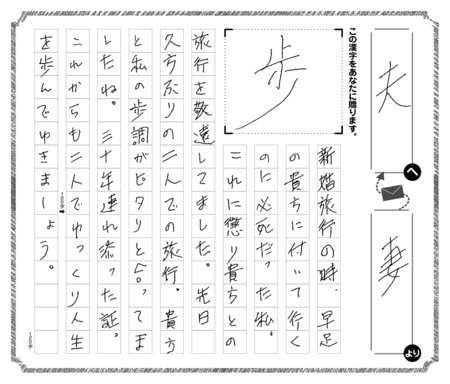 夫
へ
妻
より
この漢字をあなたに贈ります。
歩
新婚旅行の時、早足
の貴方に付いて行く
のに必死だった私。
これに懲り貴方との
旅行を敬遠してました。先日
久方ぶりの二人での旅行。貴方
と私の歩調がピタリと合ってま
したね。三十年連れ添った証。
これからも二人でゆっくり人生
100字
を歩んでゆきましょう。
120字